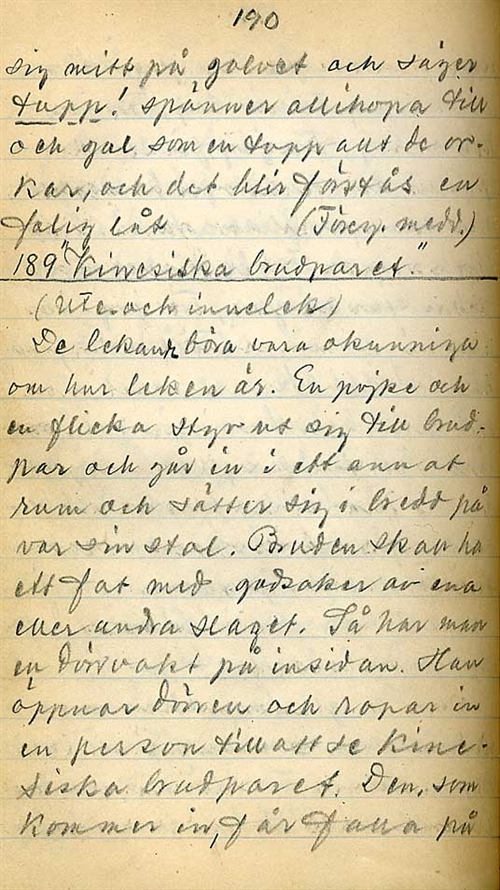 190
sig mitt på golvet och säger
tupp! spänner allihopa till
och gal som en tupp allt de or-
kar, och det blir förstås en
falig låt (Föreg. medd.)
189 "Kinesiska brudparet."
(Ute- och innelek)
De lekande böra vara okunniga
om hur leken är. En pojke och
en flicka styr ut sig till brud-
par och går in i ett annat
rum och sätter sig i bredd på
var sin stol. Bruden skall ha
ett fat med godsaker av ena
eller andra slaget. Så har man
en dörrvakt på insidan. Han
öppnar dörren och ropar in
en person till att se kine-
siska brudparet. Den, som
kommer in, får falla på